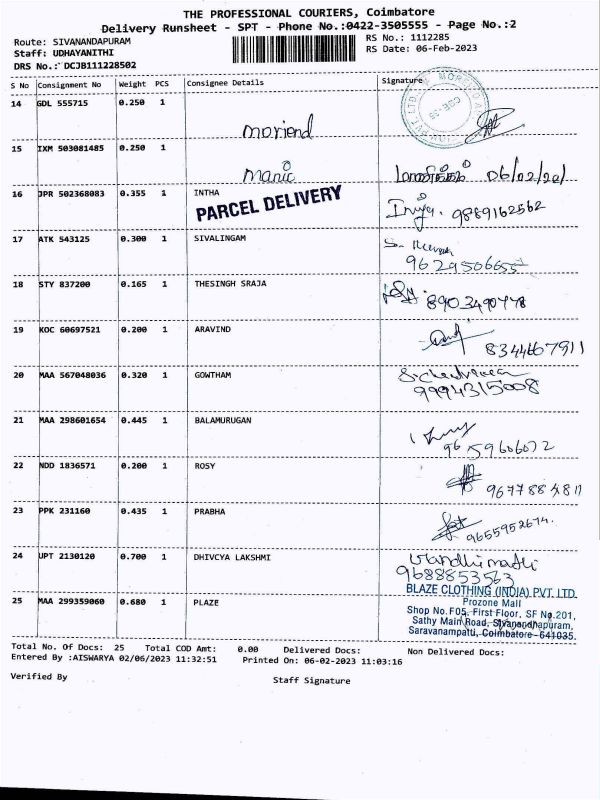 THE PROFESSIONAL COURIERS, Coimbatore
Delivery Runsheet - SPT - Phone No.:0422-3505555 - Page No.:2
Route: SIVANANDAPURAM
RS No.: 1112285
Staff: UDHAYANITHI
RS Date: 06-Feb-2023
DRS No.: DCJB111228502
S No Consignment No Weight PCS Consignee Details Signature
14 GDL 555715 0.250 1
15 IXM 503081485 0.250 1
Manic 06/02/20
16 JPR 502368083 0.355 1 INTHA
PARCEL DELIVERY
9889162562
17 ATK 543125 0.300 1 SIVALINGAM
9629506655
18 STY 837200 0.165 1 THESINGH SRAJA
8903490778
19 KOC 60697521 0.200 1 ARAVIND
8344667911
20 MAA 567048036 0.320 1 GOWTHAM
9994315008
21 MAA 298601654 0.445 1 BALAMURUGAN
9659606072
22 NDD 1836571 0.200 1 ROSY
9677884811
23 PPK 231160 0.435 1 PRABHA
9655952674.
24 UPT 2130120 0.700 1 DHIVCYA LAKSHMI
9688853563
25 MAA 299359060 0.680 1 PLAZE
BLAZE CLOTHING (INDIA) PVT. LTD.
Prozone Mall
Shop No.F05, First Floor, SF No.201,
Sathy Main Road, Sivanandhapuram,
Saravanampatti, Coimbatore-641035.
Total No. Of Docs: 25 Total COD Amt: 0.00 Delivered Docs: Non Delivered Docs:
Entered By :AISWARYA 02/06/2023 11:32:51 Printed On: 06-02-2023 11:03:16
Verified By
Staff Signature